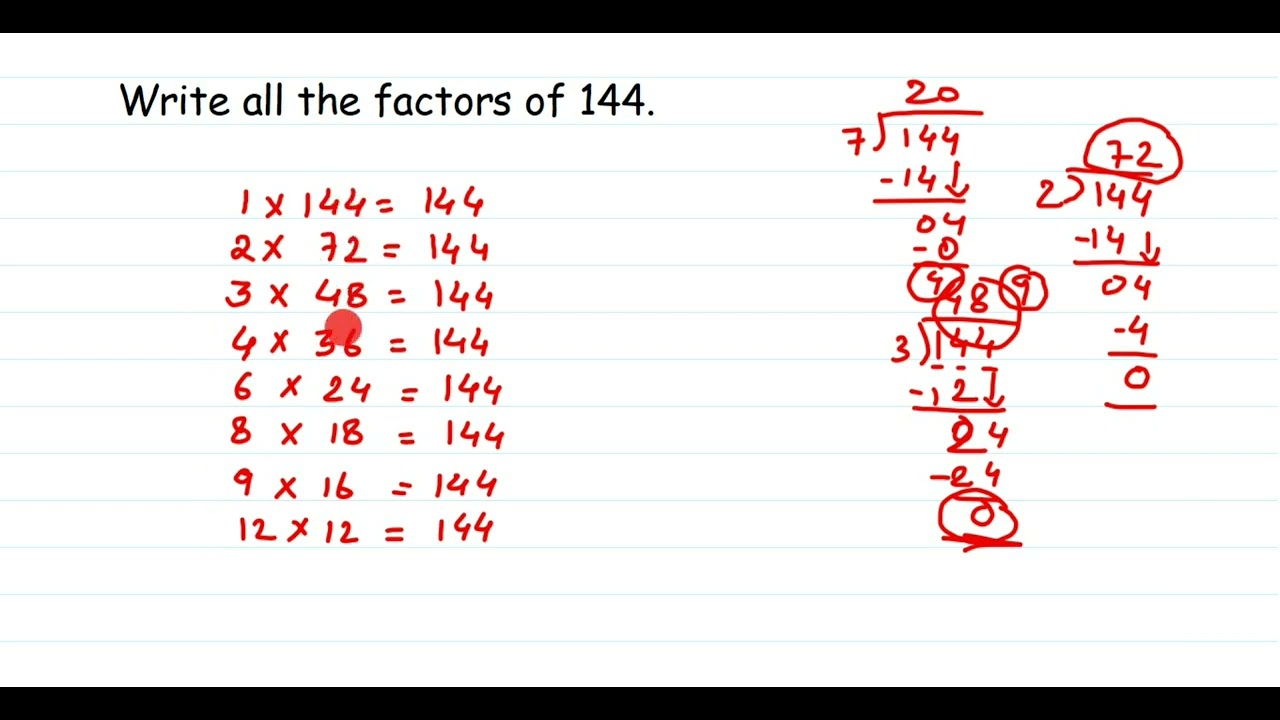 Write all the factors of 144.
1 × 144 = 144
2 × 72 = 144
3 × 48 = 144
4 × 36 = 144
6 × 24 = 144
8 × 18 = 144
9 × 16 = 144
12 × 12 = 144
20
7)144
-14↓
04
-0
4
48
3)144
-12↓
24
-24
0
72
2)144
-14↓
04
-4
0